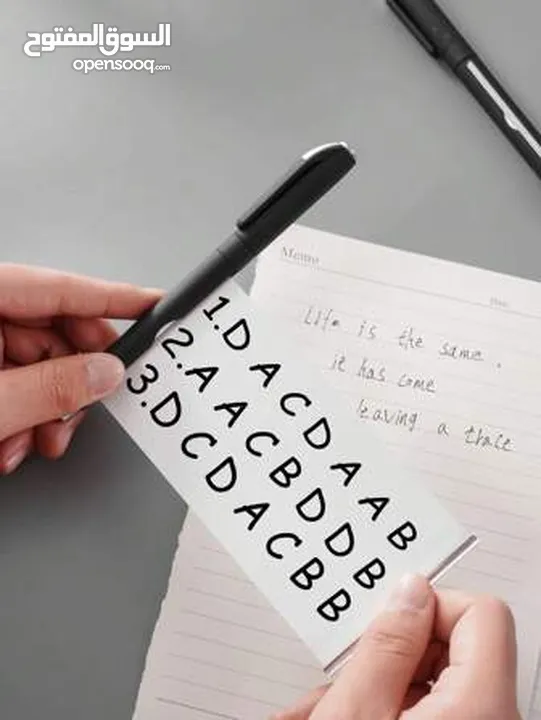 السوق المفتوح
opensooq.com
Memo
Life is the same.
it has come
leaving a trace
1.D A C D A A B
2.A A C B D D B
3.D C D A C B B